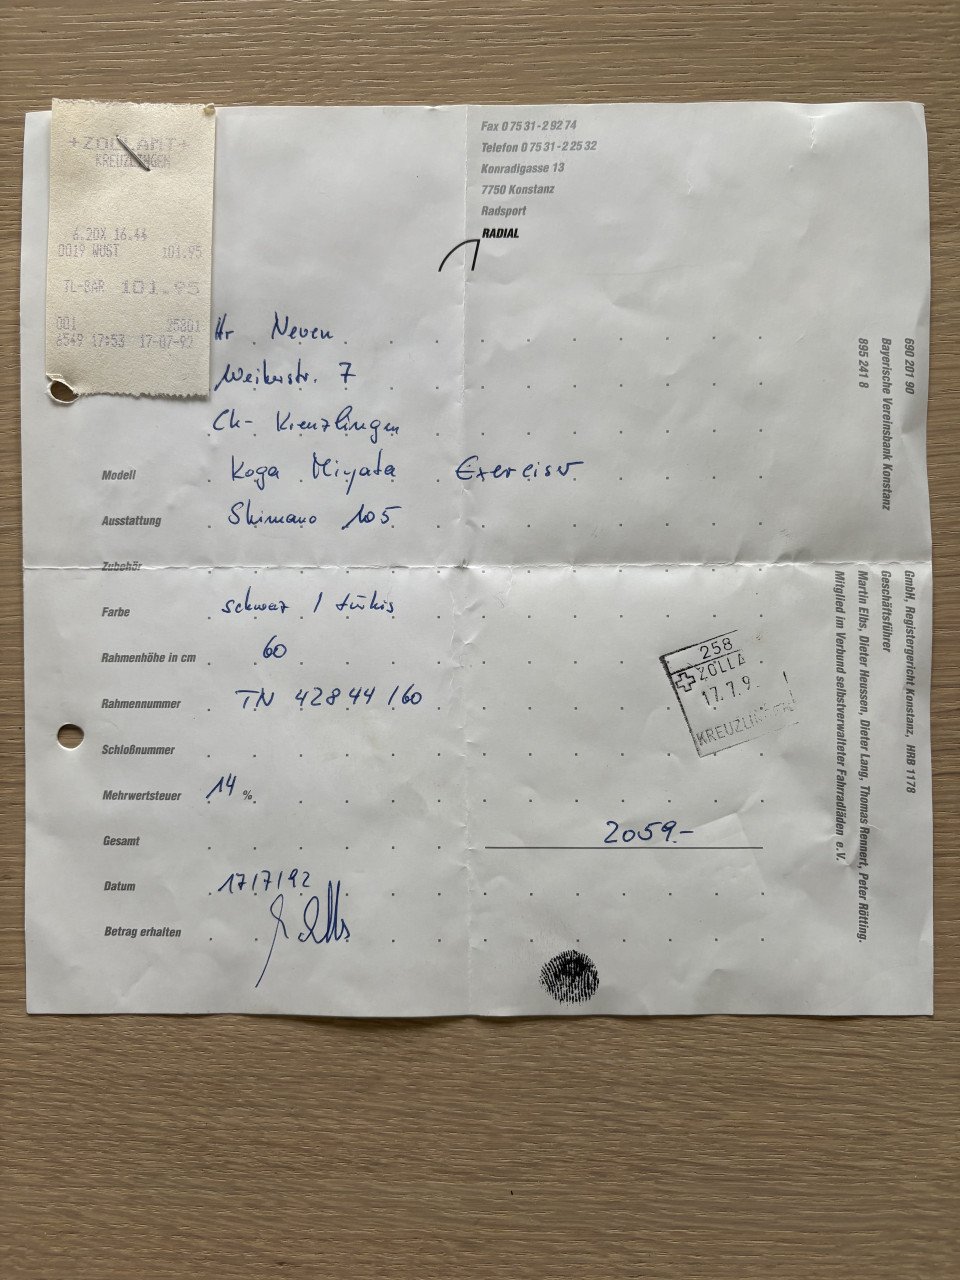 +ZOLLAMT+
KREUZLINGEN
6.20X 16.44
0019 WUST 101.95
TL-BAR 101.95
001 25801
6549 17:53 17-07-92
Fax 0 75 31 - 2 92 74
Telefon 0 75 31 - 2 25 32
Konradigasse 13
7750 Konstanz
Radsport
RADIAL
Hr Neven
Weiherstr. 7
CH- Kreuzlingen
Modell Koga Miyata Exerciser
Ausstattung Shimano 105
Zubehör
Farbe schwarz / türkis
Rahmenhöhe in cm 60
Rahmennummer TN 42844 / 60
Schloßnummer
Mehrwertsteuer 14 %
Gesamt 2059.-
Datum 17/7/92
Betrag erhalten
258
ZOLLA
17.7.9
KREUZLINGEN
690 201 90
Bayerische Vereinsbank Konstanz
895 241 8
GmbH, Registergericht Konstanz, HRB 1178
Geschäftsführer
Martin Elbs, Dieter Heussen, Dieter Lang, Thomas Rennert, Peter Rötting.
Mitglied im Verbund selbstverwalteter Fahrradläden e.V.